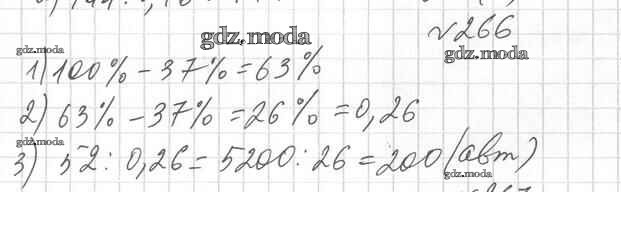 gdz.moda
№266
gdz.moda
gdz.moda
1) 100% - 37% = 63%
2) 63% - 37% = 26% = 0,26
gdz.moda
3) 52 : 0,26 = 5200 : 26 = 200 (авт)
gdz.moda